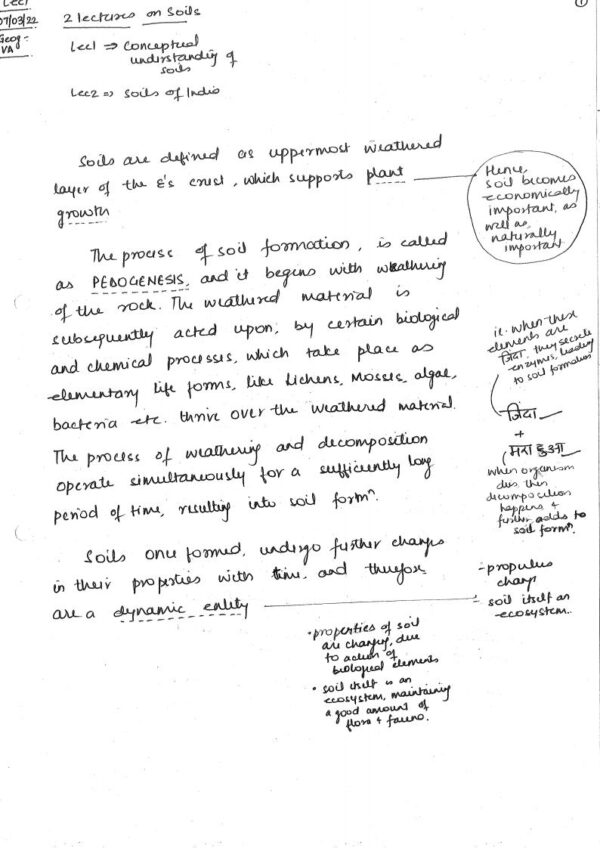 Lec1
07/03/22
Geog-
VA
①
2 lectures on Soils
Lec1 ⇒ Conceptual
understanding of
soils
Lec2 ⇒ Soils of India
Soils are defined as uppermost weathered
layer of the E's crust, which supports plant
growth
Hence,
soil becomes
economically
important, as
well as,
naturally
important
The process of soil formation, is called
as PEDOGENESIS, and it begins with weathering
of the rock. The weathered material is
subsequently acted upon, by certain biological
and chemical processes, which take place as
elementary life forms, like Lichens, Mosses, algae,
bacteria etc. thrive over the weathered material.
The process of weathering and decomposition
operate simultaneously for a sufficiently long
period of time, resulting into soil formⁿ.
ie. when these
elements are
जिंदा, they secrete
enzymes, leading
to soil formation
जिंदा
+
मरा हुआ
when organism
dies, then
decomposition
happens &
further adds to
soil formⁿ.
Soils once formed, undergo further changes
in their properties with time, and therefore
are a dynamic entity
- properties
change
- soil itself an
ecosystem.
• properties of soil
are changing, due
to action of
biological elements
• soil itself is an
ecosystem, maintaining
a good amount of
flora & fauna.